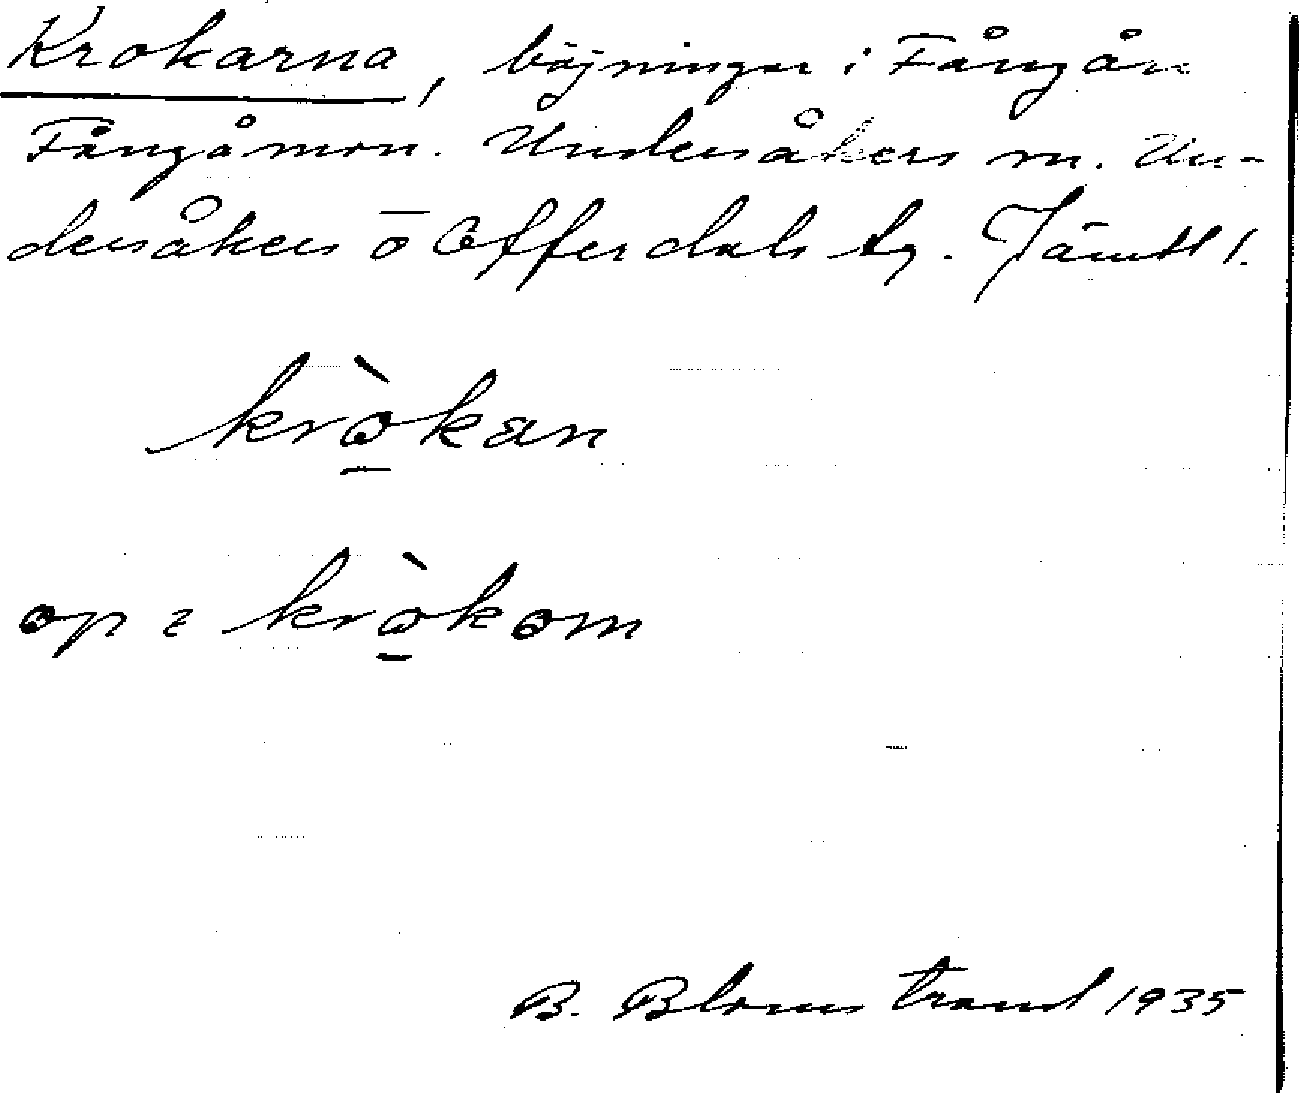 Krokarna, böjningar i Fångån
Fångåmon. Undersåkers sn. Un-
dersåkers o Offerdals tg. Jämtl l.
krò̱kan
op i krò̱kom
B. Blomstrand 1935